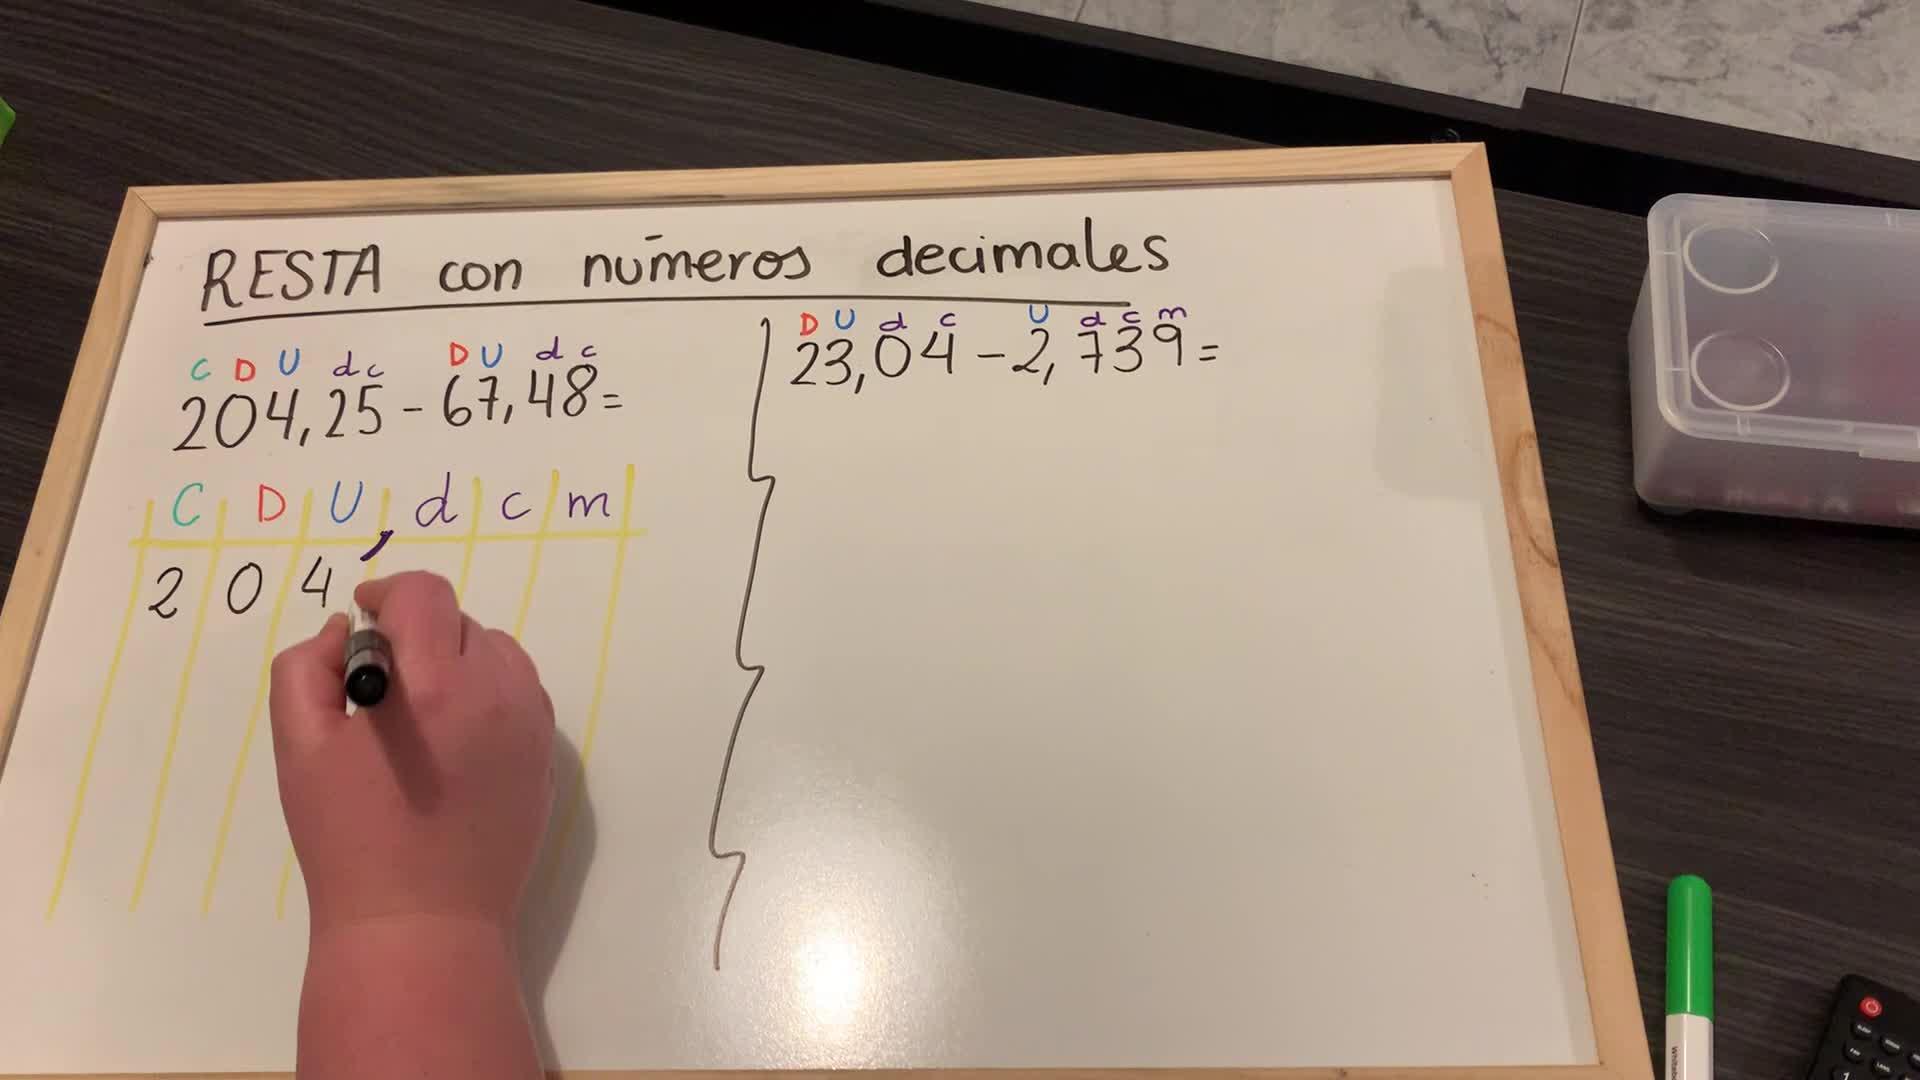 RESTA con números decimales
C D U d c D U d c
204,25 - 67,48 =
C D U , d c m
2 0 4
D U d c U d c m
23,04 - 2,739 =